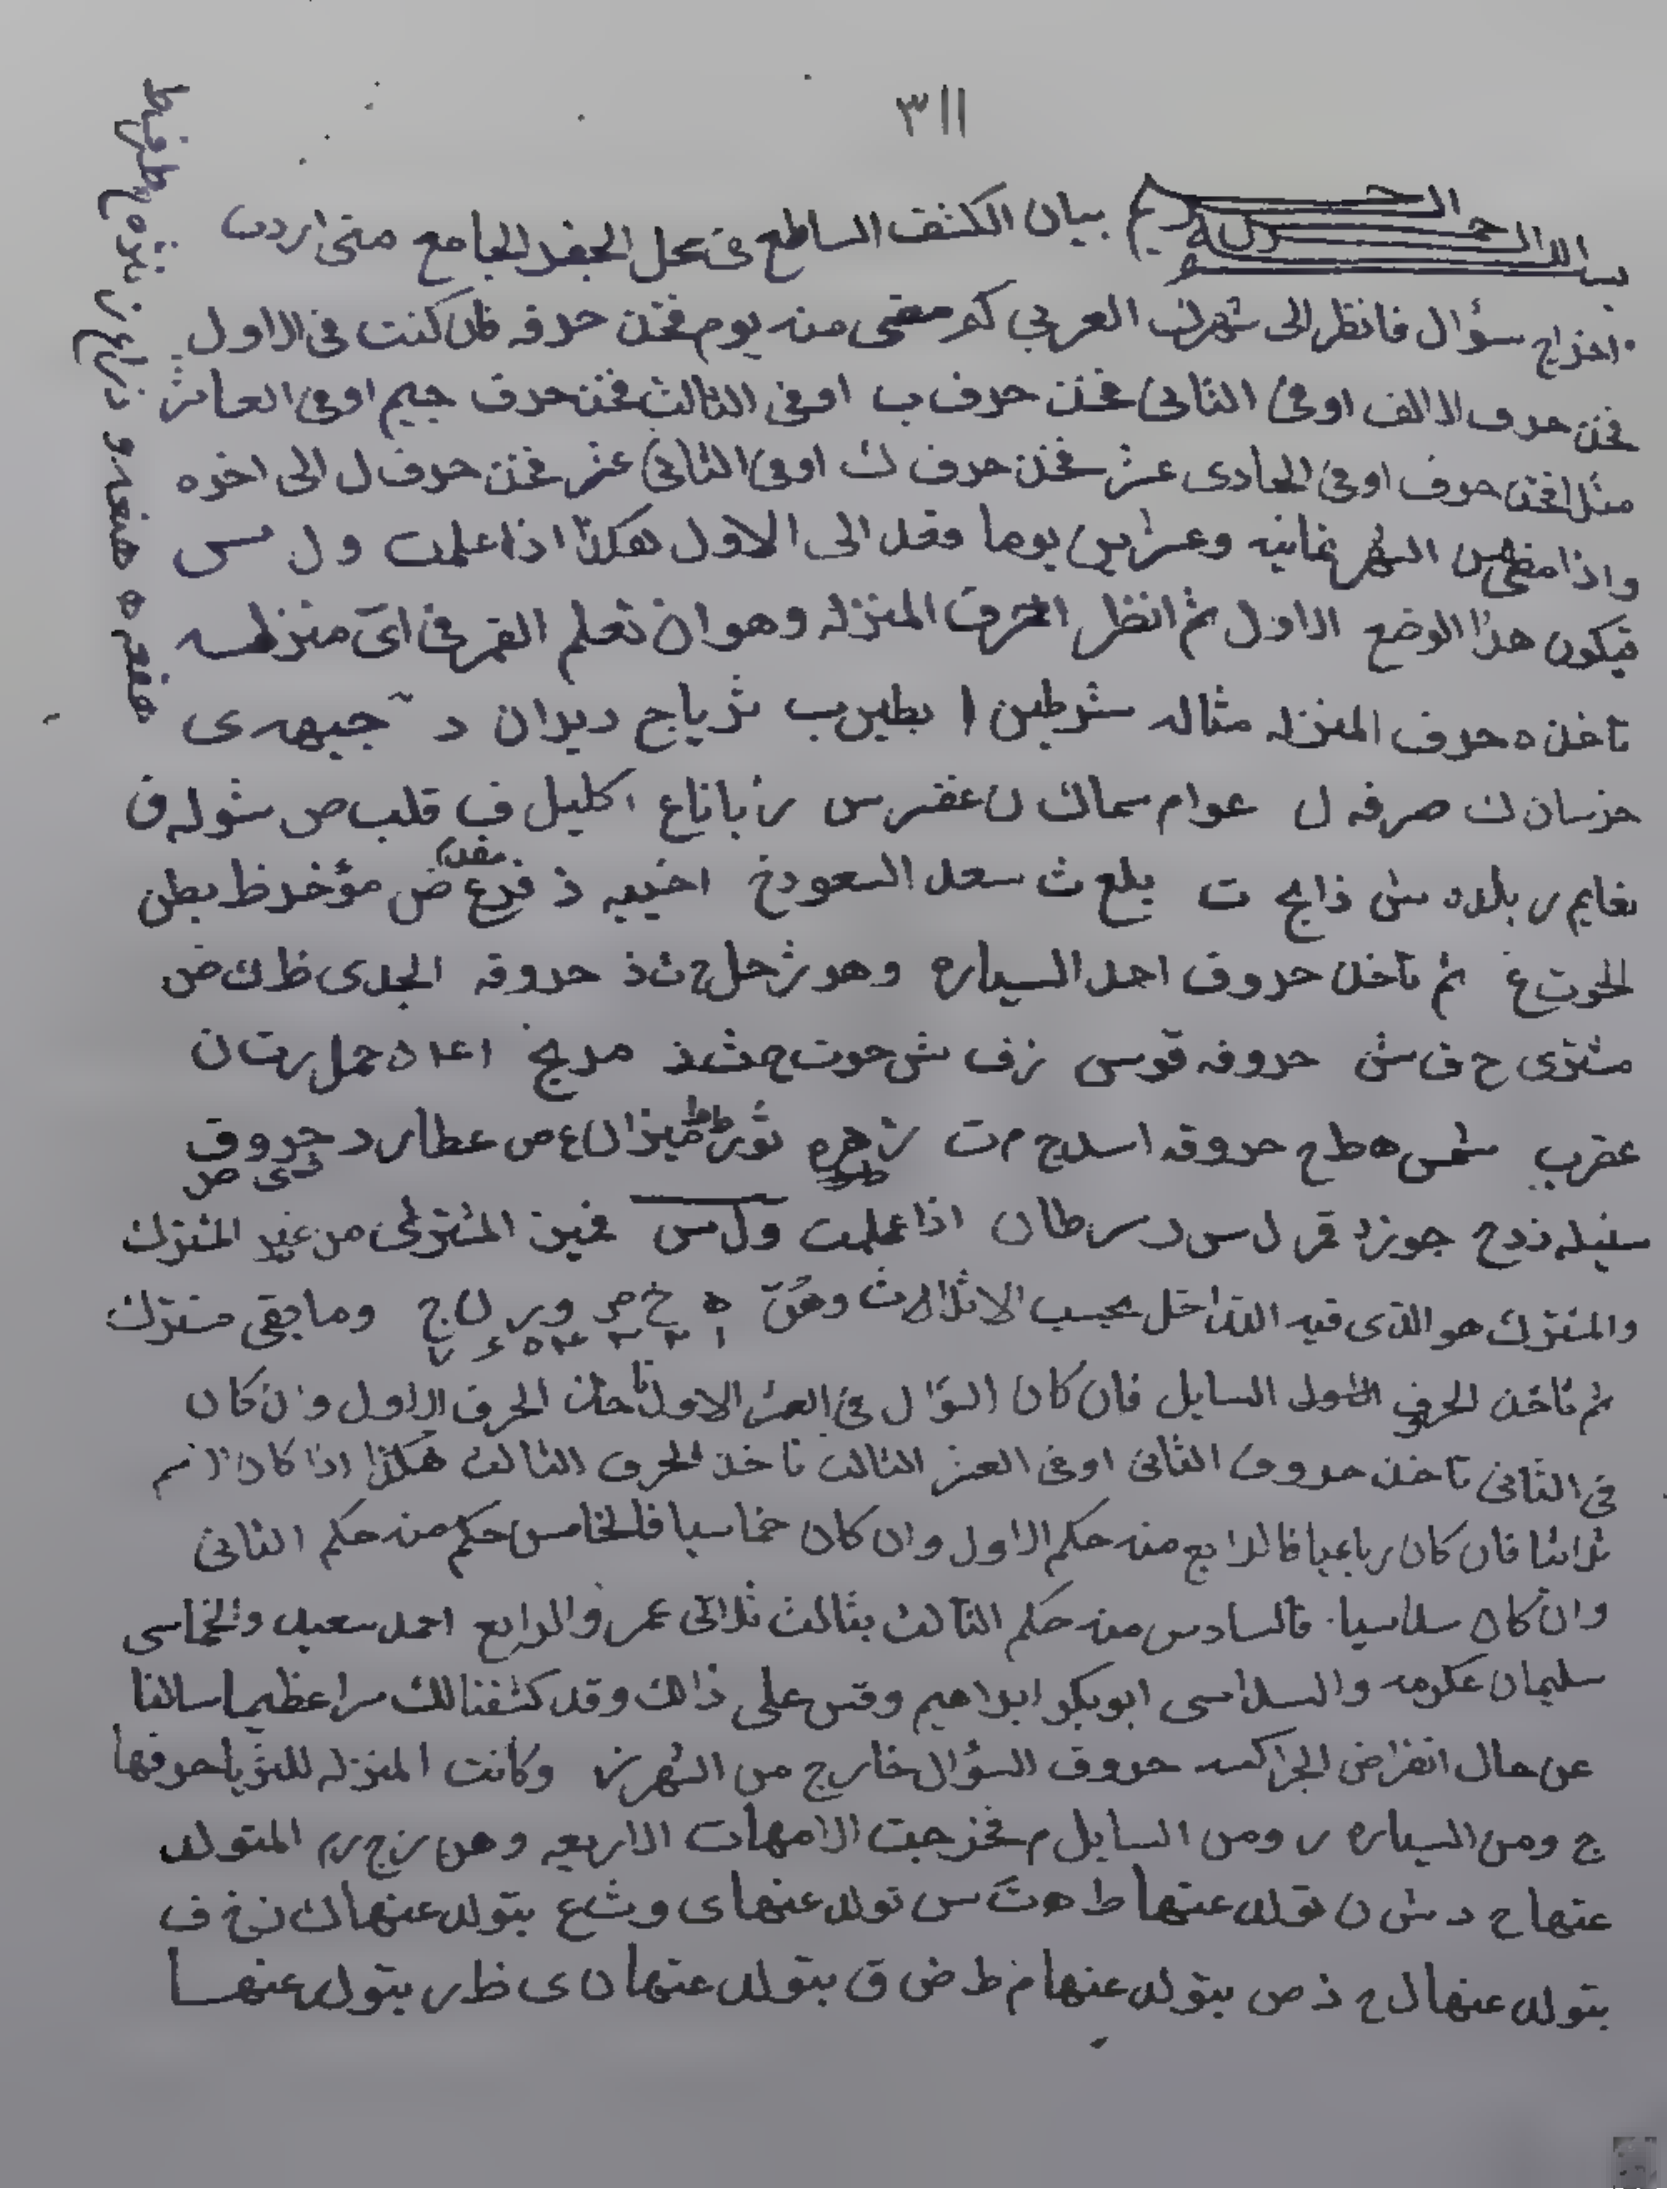 ٣١١
بسم الله الرحمن الرحيم بيان الكشف الساطع فى عمل الجفر الجامع متى اردت
اخراج سؤال فانظر الى شهرك العربي كم مضى منه يوم فخذ حرفه فان كنت فى الاول
فخذ حرف الالف اوفى الثانى فخذ حرف ب اوفى الثالث فخذ حرف جيم اوفى العاشر
مثلا فخذ حرف اوفى الحادى عشر فخذ حرف ك اوفى الثانى عشر فخذ حرف ل الى اخره
واذا مضى من الشهر ثمانيه وعشرين يوما فعد الى الاول هكذا اذا علمت ول مس
فيكون هذا الوضع الاول ثم انظر الحرف المنزله وهو ان تعلم القمر فى اى منزله
تاخذه حرف المنزله مثاله شرطين ا بطين ب ثرياج ديران د جبهه ى
خرسان ك صرفه ل عوام سماك ن غفر س زباناع اكليل ف قلب ص شوله ق
نعايم ر بلده ش ذابح ت بلع ث سعد السعود خ اخبيه ذ فرع مقدم ض مؤخر ظ بطن
الحوت غ ثم تاخذ حروف احد السياره وهو زحل ح ث ذ حروفه الجدى ظ ك ض
مشترى ح ف ش حروفه قوسى زف ش حوت ح ث ذ مريخ حمل رت ن
عقرب شمس ه ط ح حروفه اسد ج م ت زهره ثور ميزان ع ص عطارد حروف
سنبله ذدح جوزد قمر ل س د سرطان اذا علمت ول مس فميز المشترك من غير المشترك
والمشترك هو الذى فيه التداخل بحسب الاثلاث وهن ه خ ص وما بقى مشترك
ثم تاخذ الحرف السايل فان كان السؤال فى العشر الاول تاخذ الحرف الاول وان كان
فى الثانى تاخذ حروف الثانى اوفى العشر الثالث تاخذ الحرف الثالث هكذا اذا كان اسم
ثلاثيا فان كان رباعيا فالرابع منه حكم الاول وان كان خماسيا فالخامس حكم منه حكم الثانى
وان كان سداسيا فالسادس منه حكم الثالث بثالث ثلاثى عمر والرابع احمد سعيد والخماسى
سليمان عكرمه والسداسى ابوبكر ابراهيم وقس على ذالك وقد كشفنا لك سرا عظيما سالنا
عن حال انقراض الجراكسه حروف السؤال خارج من الشهر ز وكانت المنزله للثريا حرفها
ج ومن السياره ر ومن السايل م فخرجت الامهات الاربعه وهن ز ج ر م المتولد
عنها ح د ش ن تولد عنها ط ه ت س تولد عنها ى و ث ع يتولد عنها ك ز خ ف
يتولد عنها ل ح ذ ص يتولد عنها م ط ض ق يتولد عنها ن ى ظ ر يتولد عنها